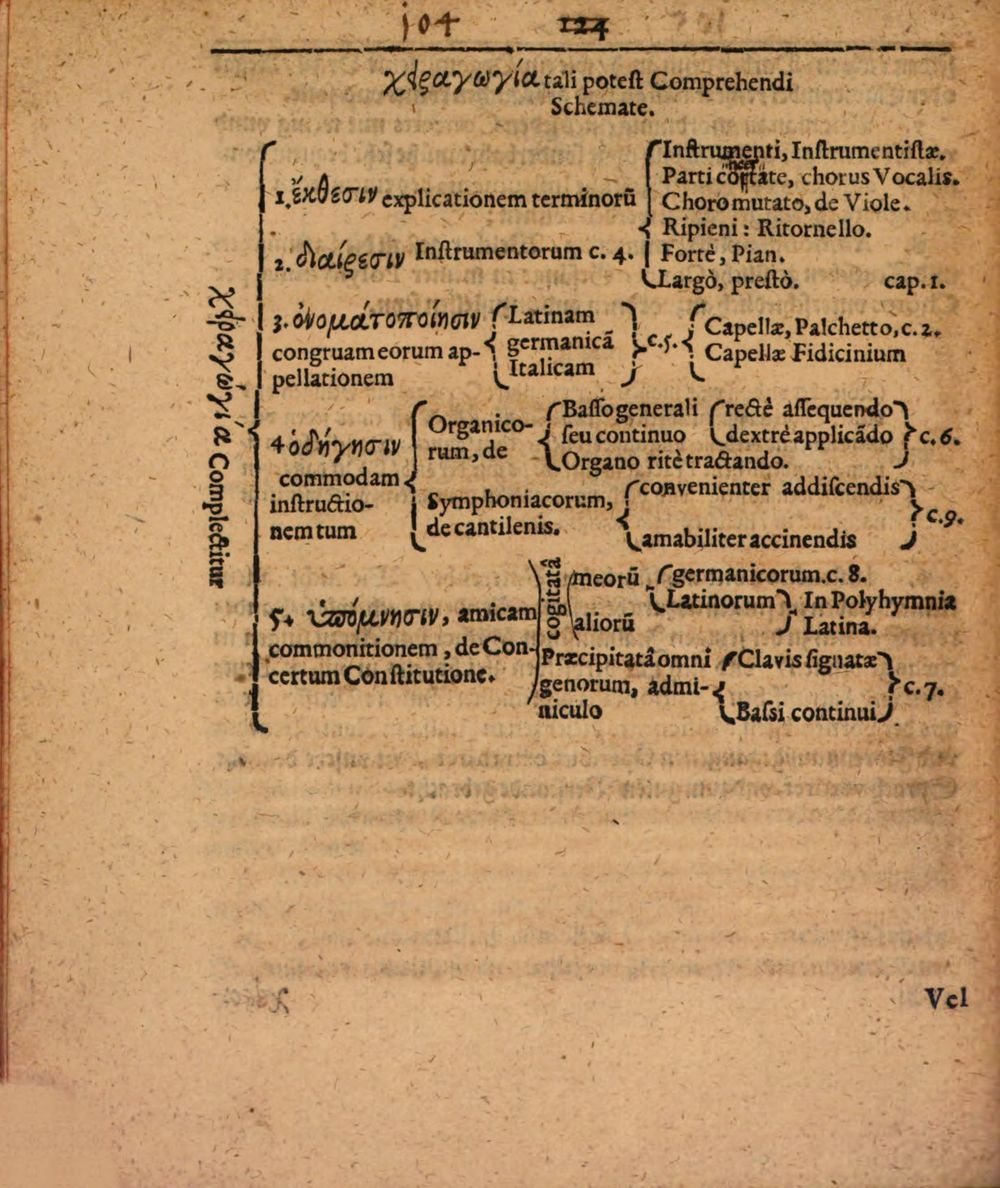 104 124
χειραγωγία tali poteſt Comprehendi
Schemate.
χειραγωγία Complectitur
1. ἔκθεσιν explicationem terminorũ
Inſtrumenti, Inſtrumentiſtæ.
Parti cõcertate, chorus Vocalis.
Choro mutato, de Viole.
Ripieni: Ritornello.
2. διαίρεσιν Inſtrumentorum c. 4.
Fortè, Pian.
Largò, preſtò. cap. 1.
3. ὀνοματοποίησιν
congruam eorum ap-
pellationem
Latinam
germanicã
Italicam
c. 5.
Capellæ, Palchetto, c. 2.
Capellæ Fidicinium
4 ὁδήγησιν
commodam
inſtructio-
nem tum
Organico-
rum, de
Baſſo generali
ſeu continuo
rectè aſſequendo
dextrè applicãdo
c. 6.
Organo ritè tractando.
Symphoniacorum,
de cantilenis.
convenienter addiſcendis
amabiliter accinendis
c. 9.
5. ὑπόμνησιν, amicam
commonitionem, de Con-
certum Conſtitutione.
cogitata
meorũ
aliorũ
germanicorum. c. 8.
Latinorum
In Polyhymnia
Latina.
Præcipitatâ omni
genorum, admi-
niculo
Clavis ſignatæ
Baſsi continui
c. 7.
Vel